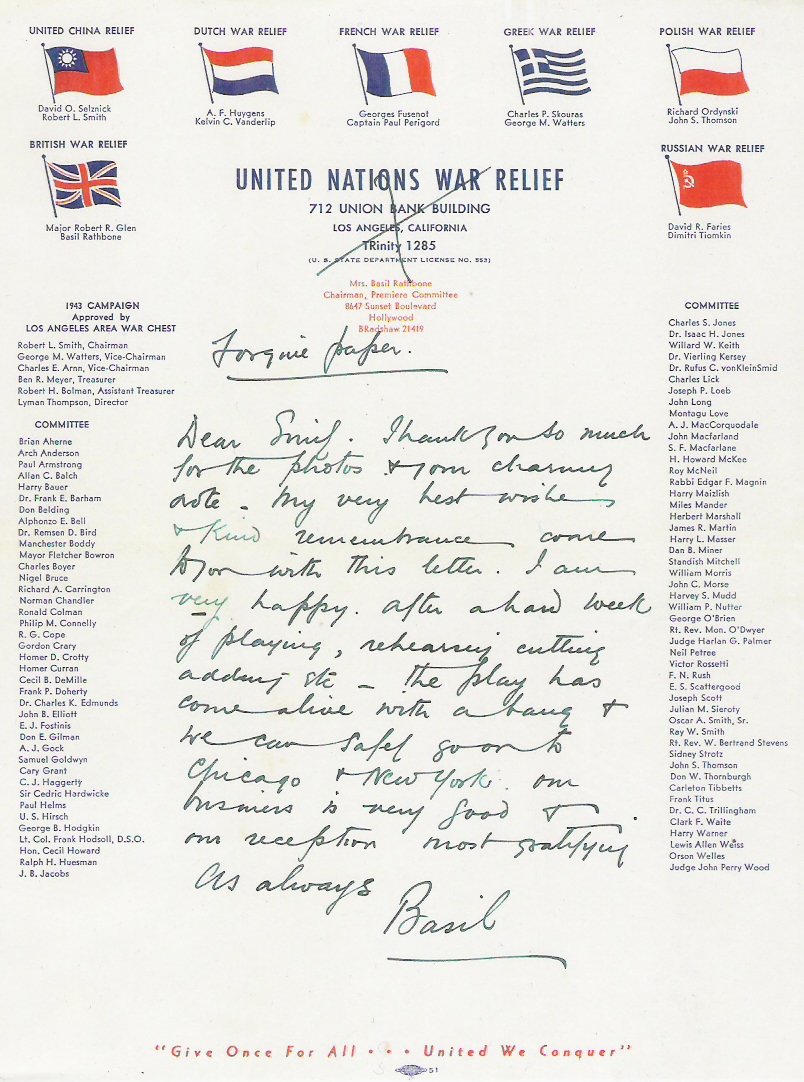 UNITED CHINA RELIEF
David O. Selznick
Robert L. Smith
DUTCH WAR RELIEF
A. F. Huygens
Kelvin C. Vanderlip
FRENCH WAR RELIEF
Georges Fusenot
Captain Paul Perigord
GREEK WAR RELIEF
Charles P. Skouras
George M. Watters
POLISH WAR RELIEF
Richard Ordynski
John S. Thomson
BRITISH WAR RELIEF
Major Robert R. Glen
Basil Rathbone
RUSSIAN WAR RELIEF
David R. Faries
Dimitri Tiomkin
UNITED NATIONS WAR RELIEF
712 UNION BANK BUILDING
LOS ANGELES, CALIFORNIA
TRinity 1285
(U. S. STATE DEPARTMENT LICENSE NO. 553)
Mrs. Basil Rathbone
Chairman, Premiere Committee
8647 Sunset Boulevard
Hollywood
BRadshaw 21419
1943 CAMPAIGN
Approved by
LOS ANGELES AREA WAR CHEST
Robert L. Smith, Chairman
George M. Watters, Vice-Chairman
Charles E. Arnn, Vice-Chairman
Ben R. Meyer, Treasurer
Robert H. Bolman, Assistant Treasurer
Lyman Thompson, Director
COMMITTEE
Brian Aherne
Arch Anderson
Paul Armstrong
Allan C. Balch
Harry Bauer
Dr. Frank E. Barham
Don Belding
Alphonzo E. Bell
Dr. Remsen D. Bird
Manchester Boddy
Mayor Fletcher Bowron
Charles Boyer
Nigel Bruce
Richard A. Carrington
Norman Chandler
Ronald Colman
Philip M. Connelly
R. G. Cope
Gordon Crary
Homer D. Crotty
Homer Curran
Cecil B. DeMille
Frank P. Doherty
Dr. Charles K. Edmunds
John B. Elliott
E. J. Fostinis
Don E. Gilman
A. J. Gock
Samuel Goldwyn
Cary Grant
C. J. Haggerty
Sir Cedric Hardwicke
Paul Helms
U. S. Hirsch
George B. Hodgkin
Lt. Col. Frank Hodsoll, D.S.O.
Hon. Cecil Howard
Ralph H. Huesman
J. B. Jacobs
COMMITTEE
Charles S. Jones
Dr. Isaac H. Jones
Willard W. Keith
Dr. Vierling Kersey
Dr. Rufus C. vonKleinSmid
Charles Lick
Joseph P. Loeb
John Long
Montagu Love
A. J. MacCorquodale
John Macfarland
S. F. Macfarlane
H. Howard McKee
Roy McNeil
Rabbi Edgar F. Magnin
Harry Maizlish
Miles Mander
Herbert Marshall
James R. Martin
Harry L. Masser
Dan B. Miner
Standish Mitchell
William Morris
John C. Morse
Harvey S. Mudd
William P. Nutter
George O'Brien
Rt. Rev. Mon. O'Dwyer
Judge Harlan G. Palmer
Neil Petree
Victor Rossetti
F. N. Rush
E. S. Scattergood
Joseph Scott
Julian M. Sieroty
Oscar A. Smith, Sr.
Ray W. Smith
Rt. Rev. W. Bertrand Stevens
Sidney Strotz
John S. Thomson
Don W. Thornburgh
Carleton Tibbetts
Frank Titus
Dr. C. C. Trillingham
Clark F. Waite
Harry Warner
Lewis Allen Weiss
Orson Welles
Judge John Perry Wood
Forgive paper.
Dear . Thank you so much
for the photos & your charming
note - My very best wishes
& kind remembrances come
to you with this letter. I am
very happy. After a hard week
of playing, rehearsing cutting
adding etc - the play has
come alive with a bang &
we can safely go on to
Chicago & New York. our
business is very good &
our reception most gratifying
As always
Basil
"Give Once For All • • • United We Conquer"
51